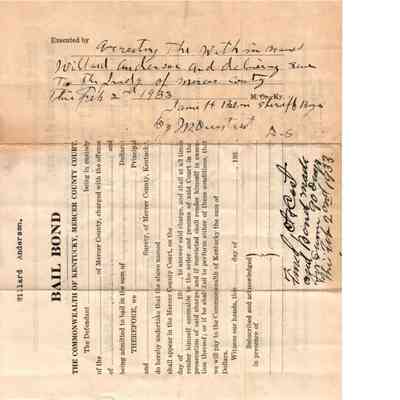 Executed by arresting the within named
Willard Anderson and delivering same
to the Judge of Mercer county
this Feb 2nd 1933
M. Co. Ky.
Sheriff
By
D-S
Willard Anderson.
BAIL BOND
THE COMMONWEALTH OF KENTUCKY, MERCER COUNTY COURT.
The Defendant being in custody
of the of Mercer County, charged with the offense
of and
being admitted to bail in the sum of Dollars
THEREFORE, we Principal
and Surety, of Mercer County, Kentucky,
do hereby undertake that the above named
shall appear in the Mercer County Court, on the
day of 19 , to answer said charge, and shall at all times
render himself amenable to the order and process of said Court in the
prosecution of said charge, and if convicted shall render himself in execu-
tion thereof; or if he shall fail to perform either of these conditions, that
we will pay to the Commonwealth of Kentucky the sum of
Dollars.
Witness our hands, this day of , 193
Subscribed and acknowledged
in presence of
and Bond made
this Feb 2nd 1933